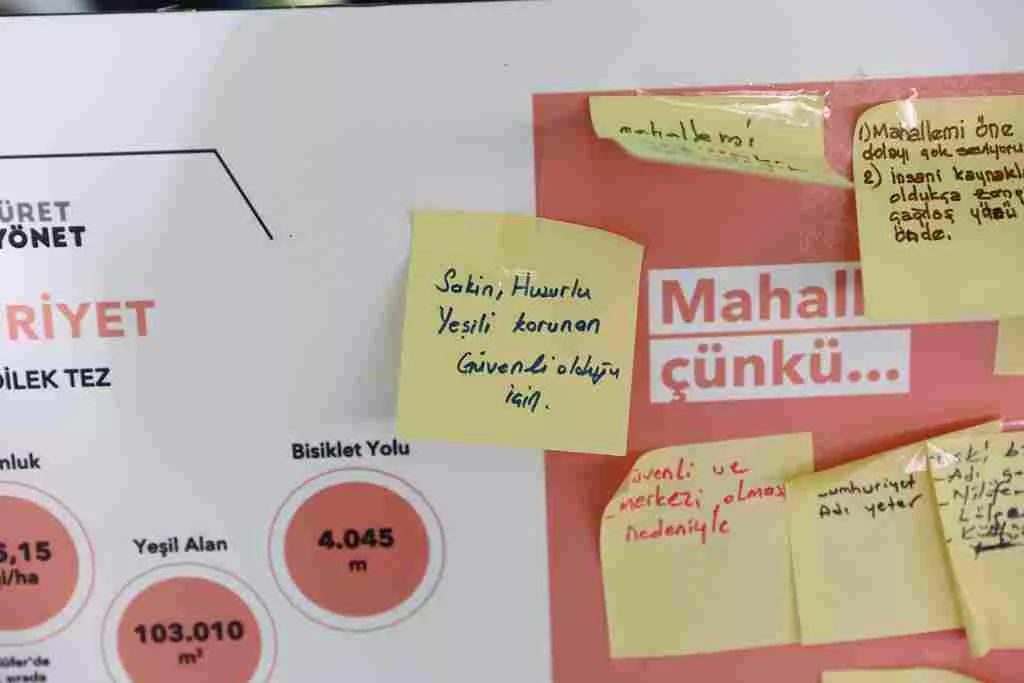 ÜRET
YÖNET
RİYET
DİLEK TEZ
nluk
5,15
i/ha
Yeşil Alan
103.010
m²
Bisiklet Yolu
4.045
m
lüfer'de
sırada
Sakin, Huzurlu
Yeşili korunan
Güvenli olduğu
için.
mahallemi
1) Mahallemi öne
dolayı çok seviyoru
2) İnsani kaynakla
oldukça zeng
çağdaş yüzü
önde.
Mahall
çünkü...
Güvenli ve
merkezi olması
nedeniyle
Cumhuriyet
Adı yeter
Adı
Nilüfe